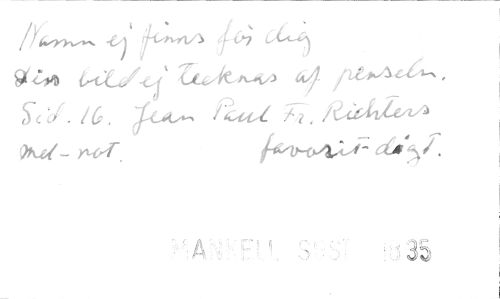 Namn ej finns för dig
Din bild ej tecknas af penseln.
Sid. 16. Jean Paul Fr. Richters
mel-not. favorit-digt.
MANKELL SBST 1835